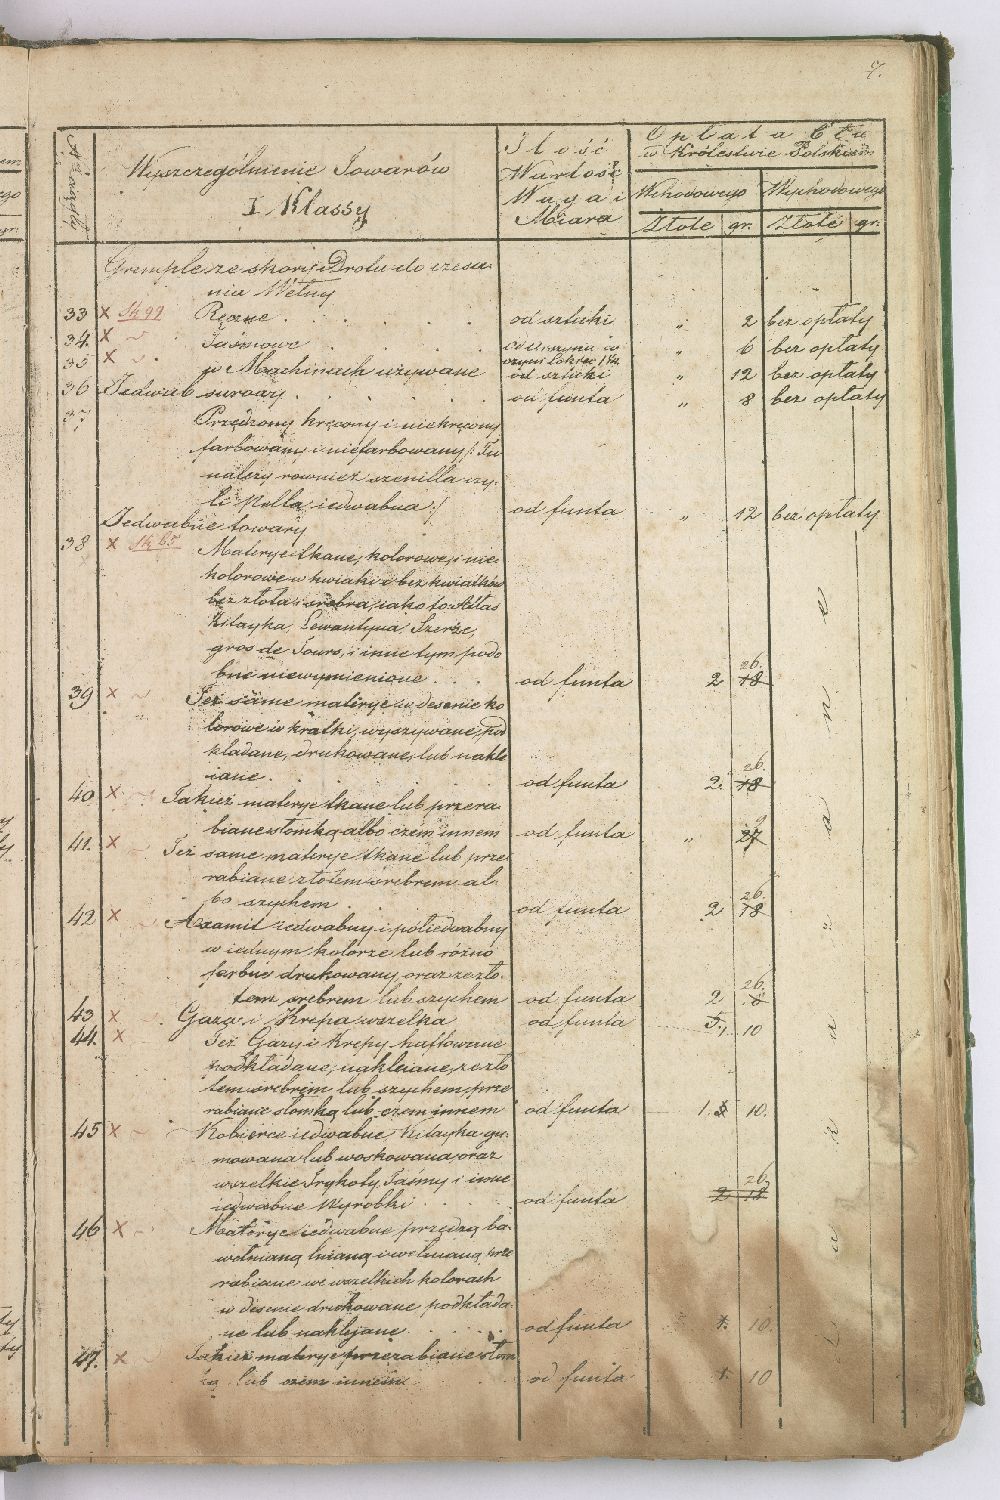 7.
Wyszczególnienie Towarów
I. Klassy
Ilość
Wartość
Waga i
Miara
Opłata Cła
w Królestwie Polskiem
Wchodowego Wychodowego
Złote gr. Złote gr.
Gremple ze skóry i Drotu do czesa-
nia Wełny
33 × Ręczne . . . od sztuki " 2 bez opłaty
34. × Taśmowe " 6 bez opłaty
35 × w Machinach używane od sztuki " 12 bez opłaty
36 Jedwab surowy . . . od funta " 8 bez opłaty
37 Przędzony kręcony i niekręcony
farbowany i niefarbowany /: Tu
należy również szenilla czy-
li Mella iedwabna :/ od funta " 12 bez opłaty
Jedwabne towary
38 × Materye tkane, kolorowe, i nie-
kolorowe w kwiaki i bez kwiatków
bez złota i srebra, iako to: Atłas
Kitayka, Lewantyna, Szerze,
gros de Tours, i inne tym podo
bne niewymienione . . . od funta 2 26. 18
39 × Też same materye w desenie ko
lorowe w kratki, wyszywane, pod
kladane, drukowane, lub nakle
iane . . . od funta 2. 26. 18
40 × Takież materye tkane lub przera
biane słomką albo czem innem od funta " 27
41. × Też same materye tkane lub prze-
rabiane złotem srebrem al-
bo szychem . od funta 2 26. 18
42 × Axamit iedwabny i półiedwabny
w iednym kolorze lub różno
farbne drukowany, oraz ze zło-
tem srebrem lub szychem od funta 2 26.
43 × Gaza i Krepa wszelka od funta 10
44. × Też Gazy i Krepy haftowane
podkładane, nakleiane, ze zło
tem srebrem lub szychem, prze
rabiane słomką lub czem innem od funta 1. 10.
45 × Kobierce iedwabne, Kitayka gu-
mowana lub woskowana, oraz
wszelkie Trykoty, Taśmy i inne
iedwabne Wyrobki . . od funta 2 26. 18
46 × Materye iedwabne przędzą ba-
wełnianą lnianą i wełnianą prze
rabiane we wszelkich kolorach
w desenie drukowane podkłada-
ne lub naklejane . . . od funta 1. 10
47. × Takież materye przerabiane słom
ką lub czem innem . od funta 1. 10